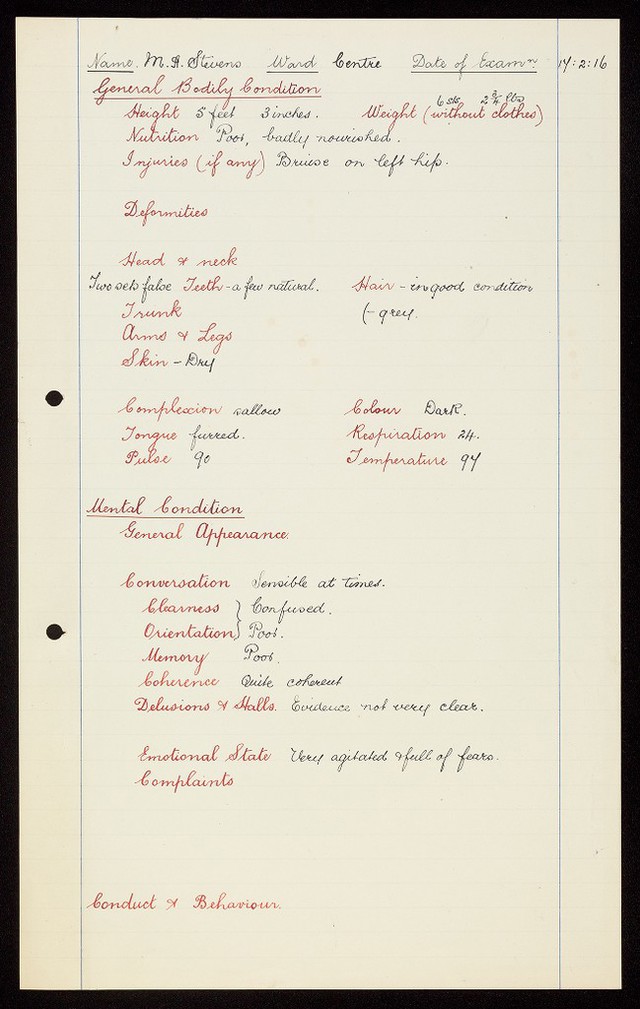 Name. M. A. Stevens Ward Centre Date of Examn. 14:2:16
General Bodily Condition
6 sts. 2 3/4 lbs
Height 5 feet 3 inches. Weight (without clothes)
Nutrition Poor, badly nourished.
Injuries (if any) Bruise on left hip.
Deformities
Head & neck
Two sets false Teeth - a few natural. Hair - in good condition
Trunk (- grey.
Arms & Legs
Skin - Dry
Complexion sallow Colour Dark.
Tongue furred. Respiration 24.
Pulse 90 Temperature 97
Mental Condition
General Appearance.
Conversation Sensible at times.
Clearness } Confused.
Orientation } Poor.
Memory Poor.
Coherence Quite coherent
Delusions & Halls. Evidence not very clear.
Emotional State Very agitated & full of fears.
Complaints
Conduct & Behaviour.